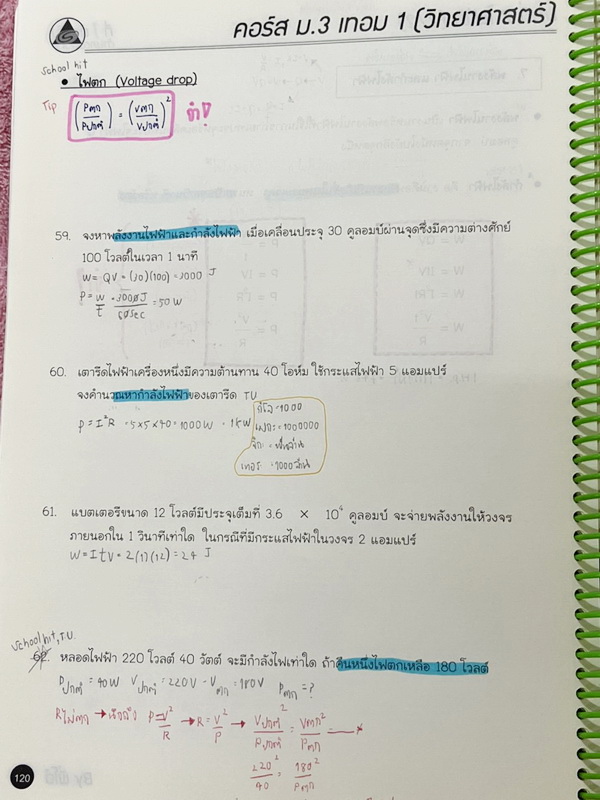 คอร์ส ม.3 เทอม 1 (วิทยาศาสตร์)
School hit
• ไฟตก (Voltage drop)
Tip (Pตก/Pปกติ) = (Vตก/Vปกติ)²
59. จงหาพลังงานไฟฟ้าและกำลังไฟฟ้า เมื่อเคลื่อนประจุ 30 คูลอมบ์ผ่านจุดซึ่งมีความต่างศักย์
100 โวลต์ในเวลา 1 นาที
W = QV = (30)(100) = 3000 J
P = W/t = 3000 J/60 sec = 50 W
60. เตารีดไฟฟ้าเครื่องหนึ่งมีความต้านทาน 40 โอห์ม ใช้กระแสไฟฟ้า 5 แอมแปร์
จงคำนวณหากำลังไฟฟ้าของเตารีด TU
P = I²R = 5×5×40 = 1000 W = 1 kW
กิโล = 1000
เมกะ = 1000000
จิกะ = พันล้าน
เทอระ = 1000 พันล้าน
61. แบตเตอรีขนาด 12 โวลต์มีประจุเต็มที่ 3.6 × 10⁴ คูลอมบ์ จะจ่ายพลังงานให้วงจร
ภายนอกใน 1 วินาทีเท่าใด ในกรณีที่มีกระแสไฟฟ้าในวงจร 2 แอมแปร์
W = ItV = 2(1)(12) = 24 J
School hit, T.U.
62. หลอดไฟฟ้า 220 โวลต์ 40 วัตต์ จะมีกำลังไฟเท่าใด ถ้าคืนหนึ่งไฟตกเหลือ 180 โวลต์
Pปกติ = 40 W Vปกติ = 220 V - Vตก = 180 V Pตก = ?
Rไม่ตก → P = V²/R → R = V²/P → Vปกติ²/Pปกติ = Vตก²/Pตก
220²/40 = 180²/Pตก
120